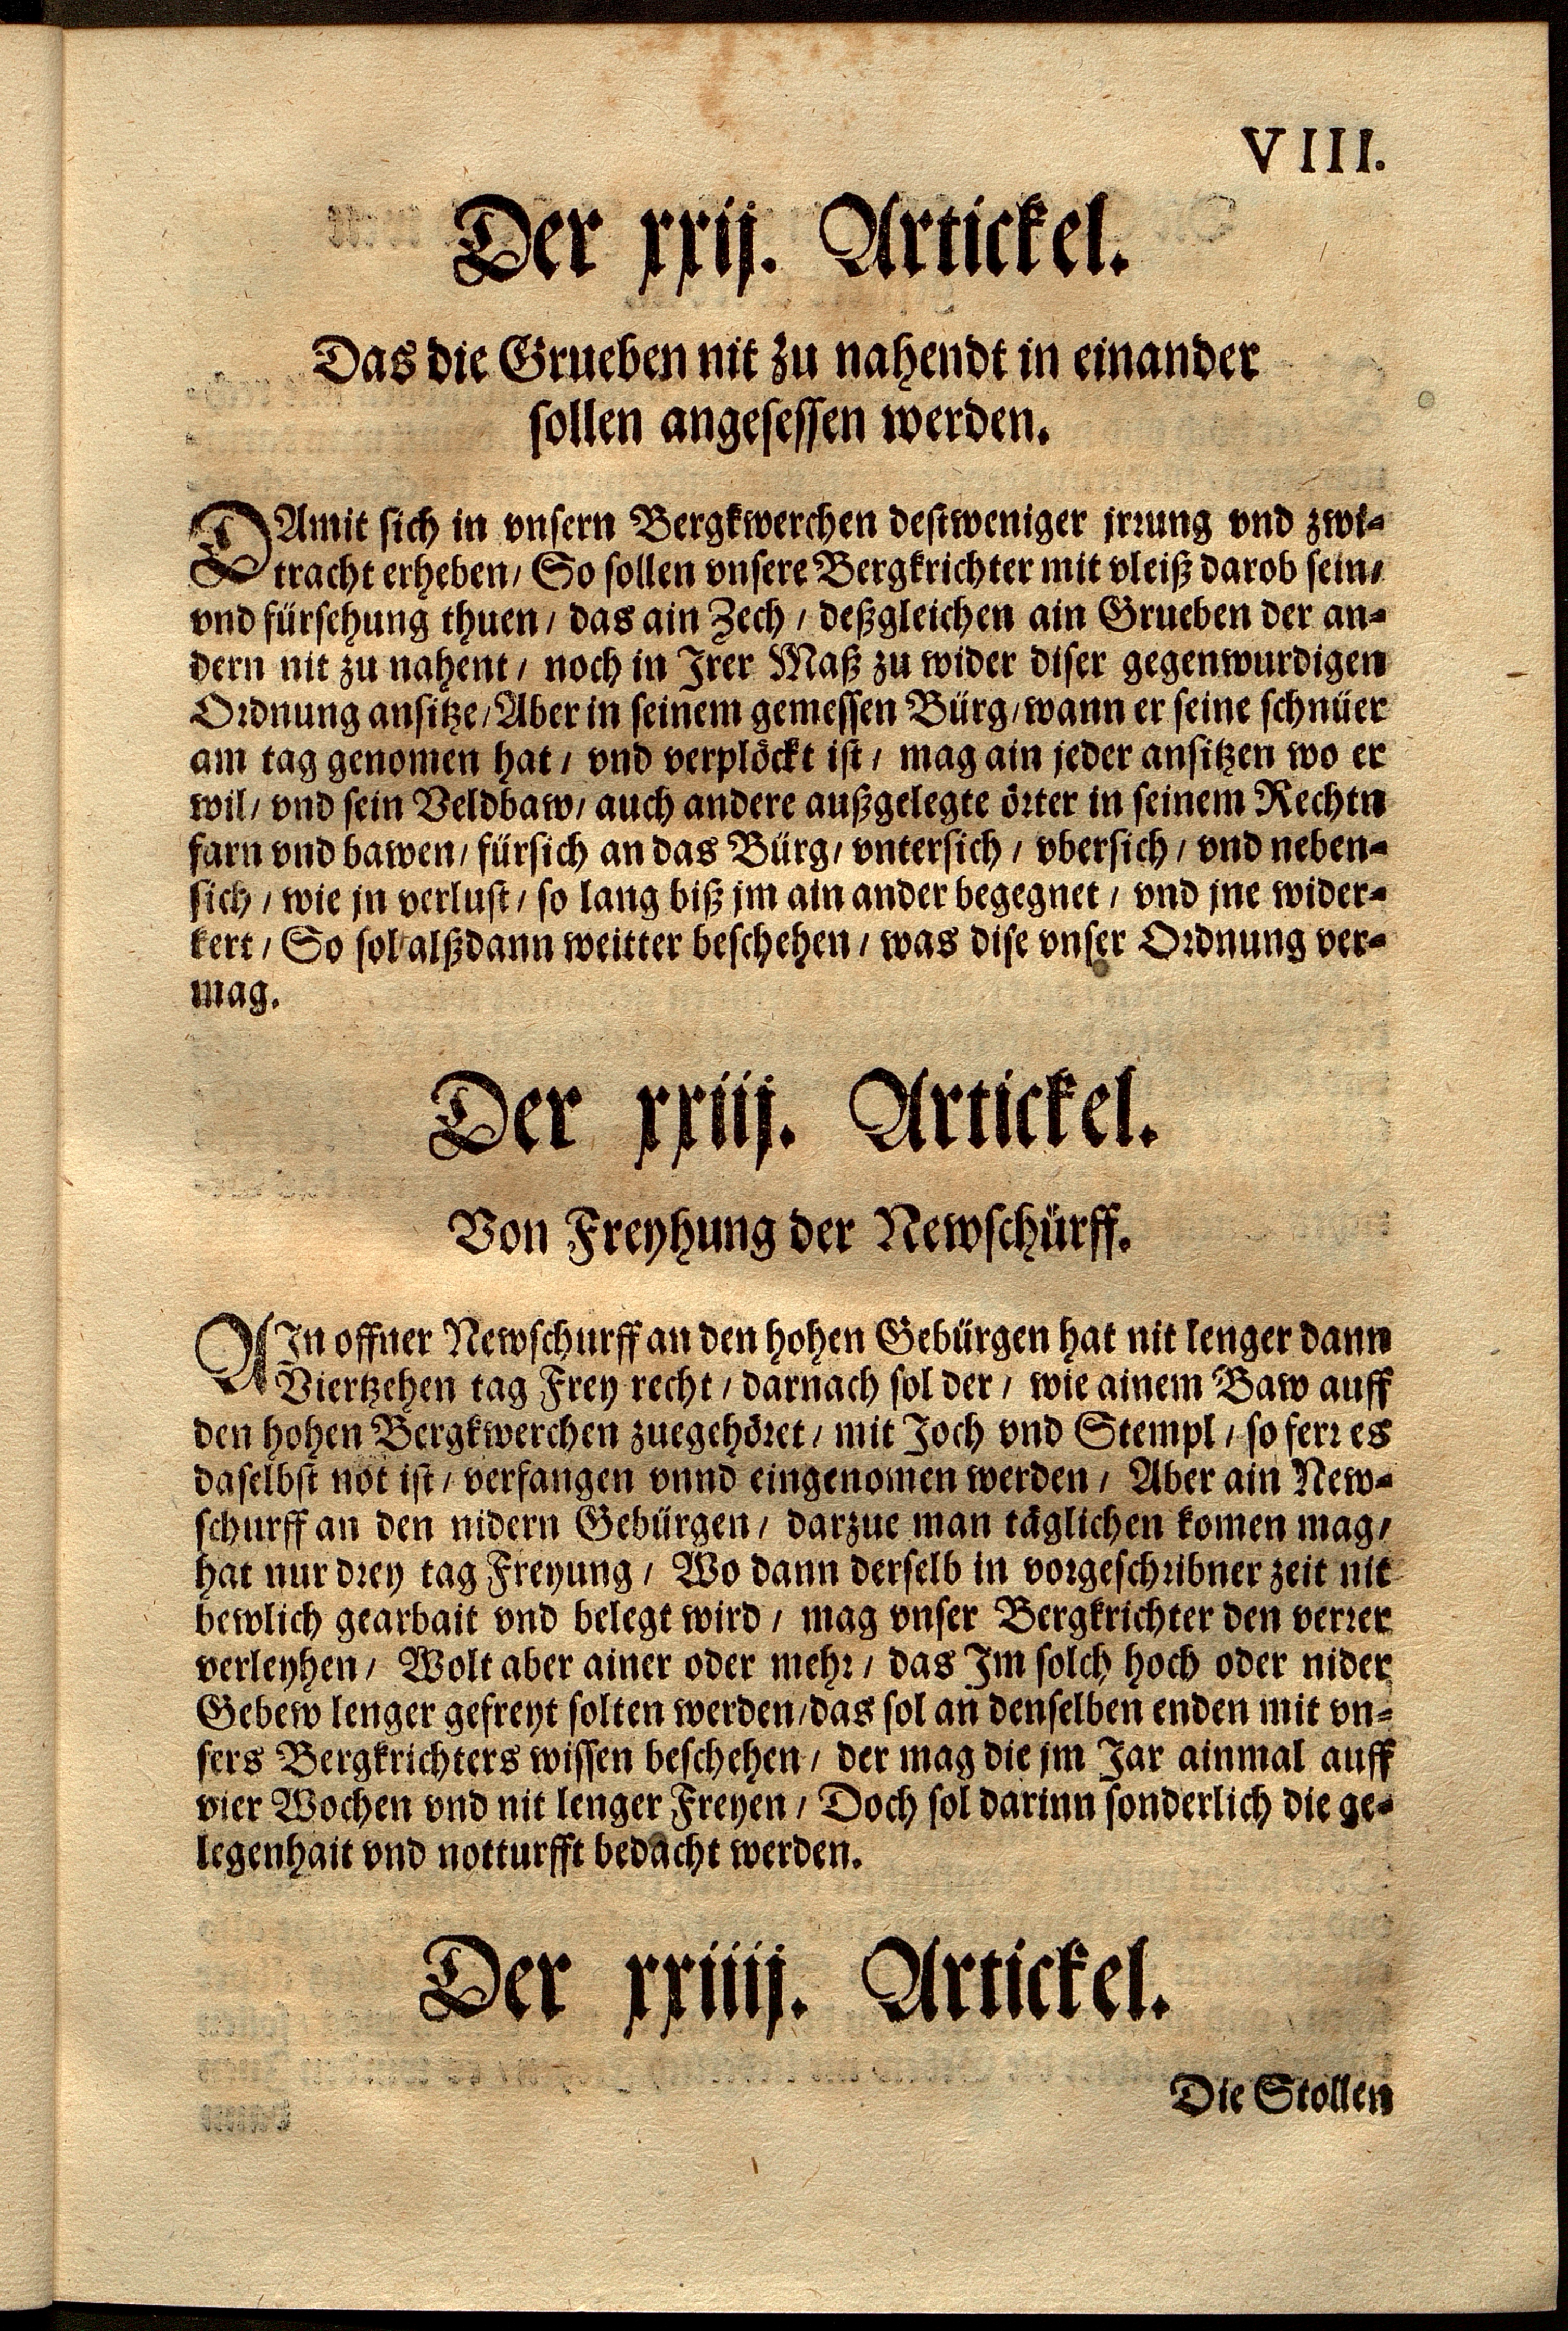 VIII.
Der xxij. Artickel.
Das die Grueben nit zu nahendt in einander
sollen angesessen werden.
DAmit sich in vnsern Bergkwerchen destweniger jrrung vnd zwi-
tracht erheben/ So sollen vnsere Bergkrichter mit vleiß darob sein/
vnd fürsehung thuen/ das ain Zech/ deßgleichen ain Grueben der an-
dern nit zu nahent/ noch in Irer Maß zu wider diser gegenwurdigen
Ordnung ansitze/ Aber in seinem gemessen Bürg/ wann er seine schnüer
am tag genomen hat/ vnd verplöckt ist/ mag ain jeder ansitzen wo er
wil/ vnd sein Veldbaw/ auch andere außgelegte örter in seinem Rechtn
farn vnd bawen/ fürsich an das Bürg/ vntersich/ vbersich/ vnd neben-
sich/ wie jn verlust/ so lang biß jm ain ander begegnet/ vnd jne wider-
kert/ So sol alßdann weitter beschehen/ was dise vnser Ordnung ver-
mag.
Der xxiij. Artickel.
Von Freyhung der Newschürff.
AIn offner Newschurff an den hohen Gebürgen hat nit lenger dann
Viertzehen tag Frey recht/ darnach sol der/ wie ainem Baw auff
den hohen Bergkwerchen zuegehöret/ mit Joch vnd Stempl/ so ferr es
daselbst not ist/ verfangen vnnd eingenomen werden/ Aber ain New-
schurff an den nidern Gebürgen/ darzue man täglichen komen mag/
hat nur drey tag Freyung/ Wo dann derselb in vorgeschribner zeit nit
bewlich gearbait vnd belegt wird/ mag vnser Bergkrichter den verrer
verleyhen/ Wolt aber ainer oder mehr/ das Im solch hoch oder nider
Gebew lenger gefreyt solten werden/ das sol an denselben enden mit vn-
sers Bergkrichters wissen beschehen/ der mag die jm Jar ainmal auff
vier Wochen vnd nit lenger Freyen/ Doch sol darinn sonderlich die ge-
legenhait vnd notturfft bedacht werden.
Der xxiiij. Artickel.
Die Stollen